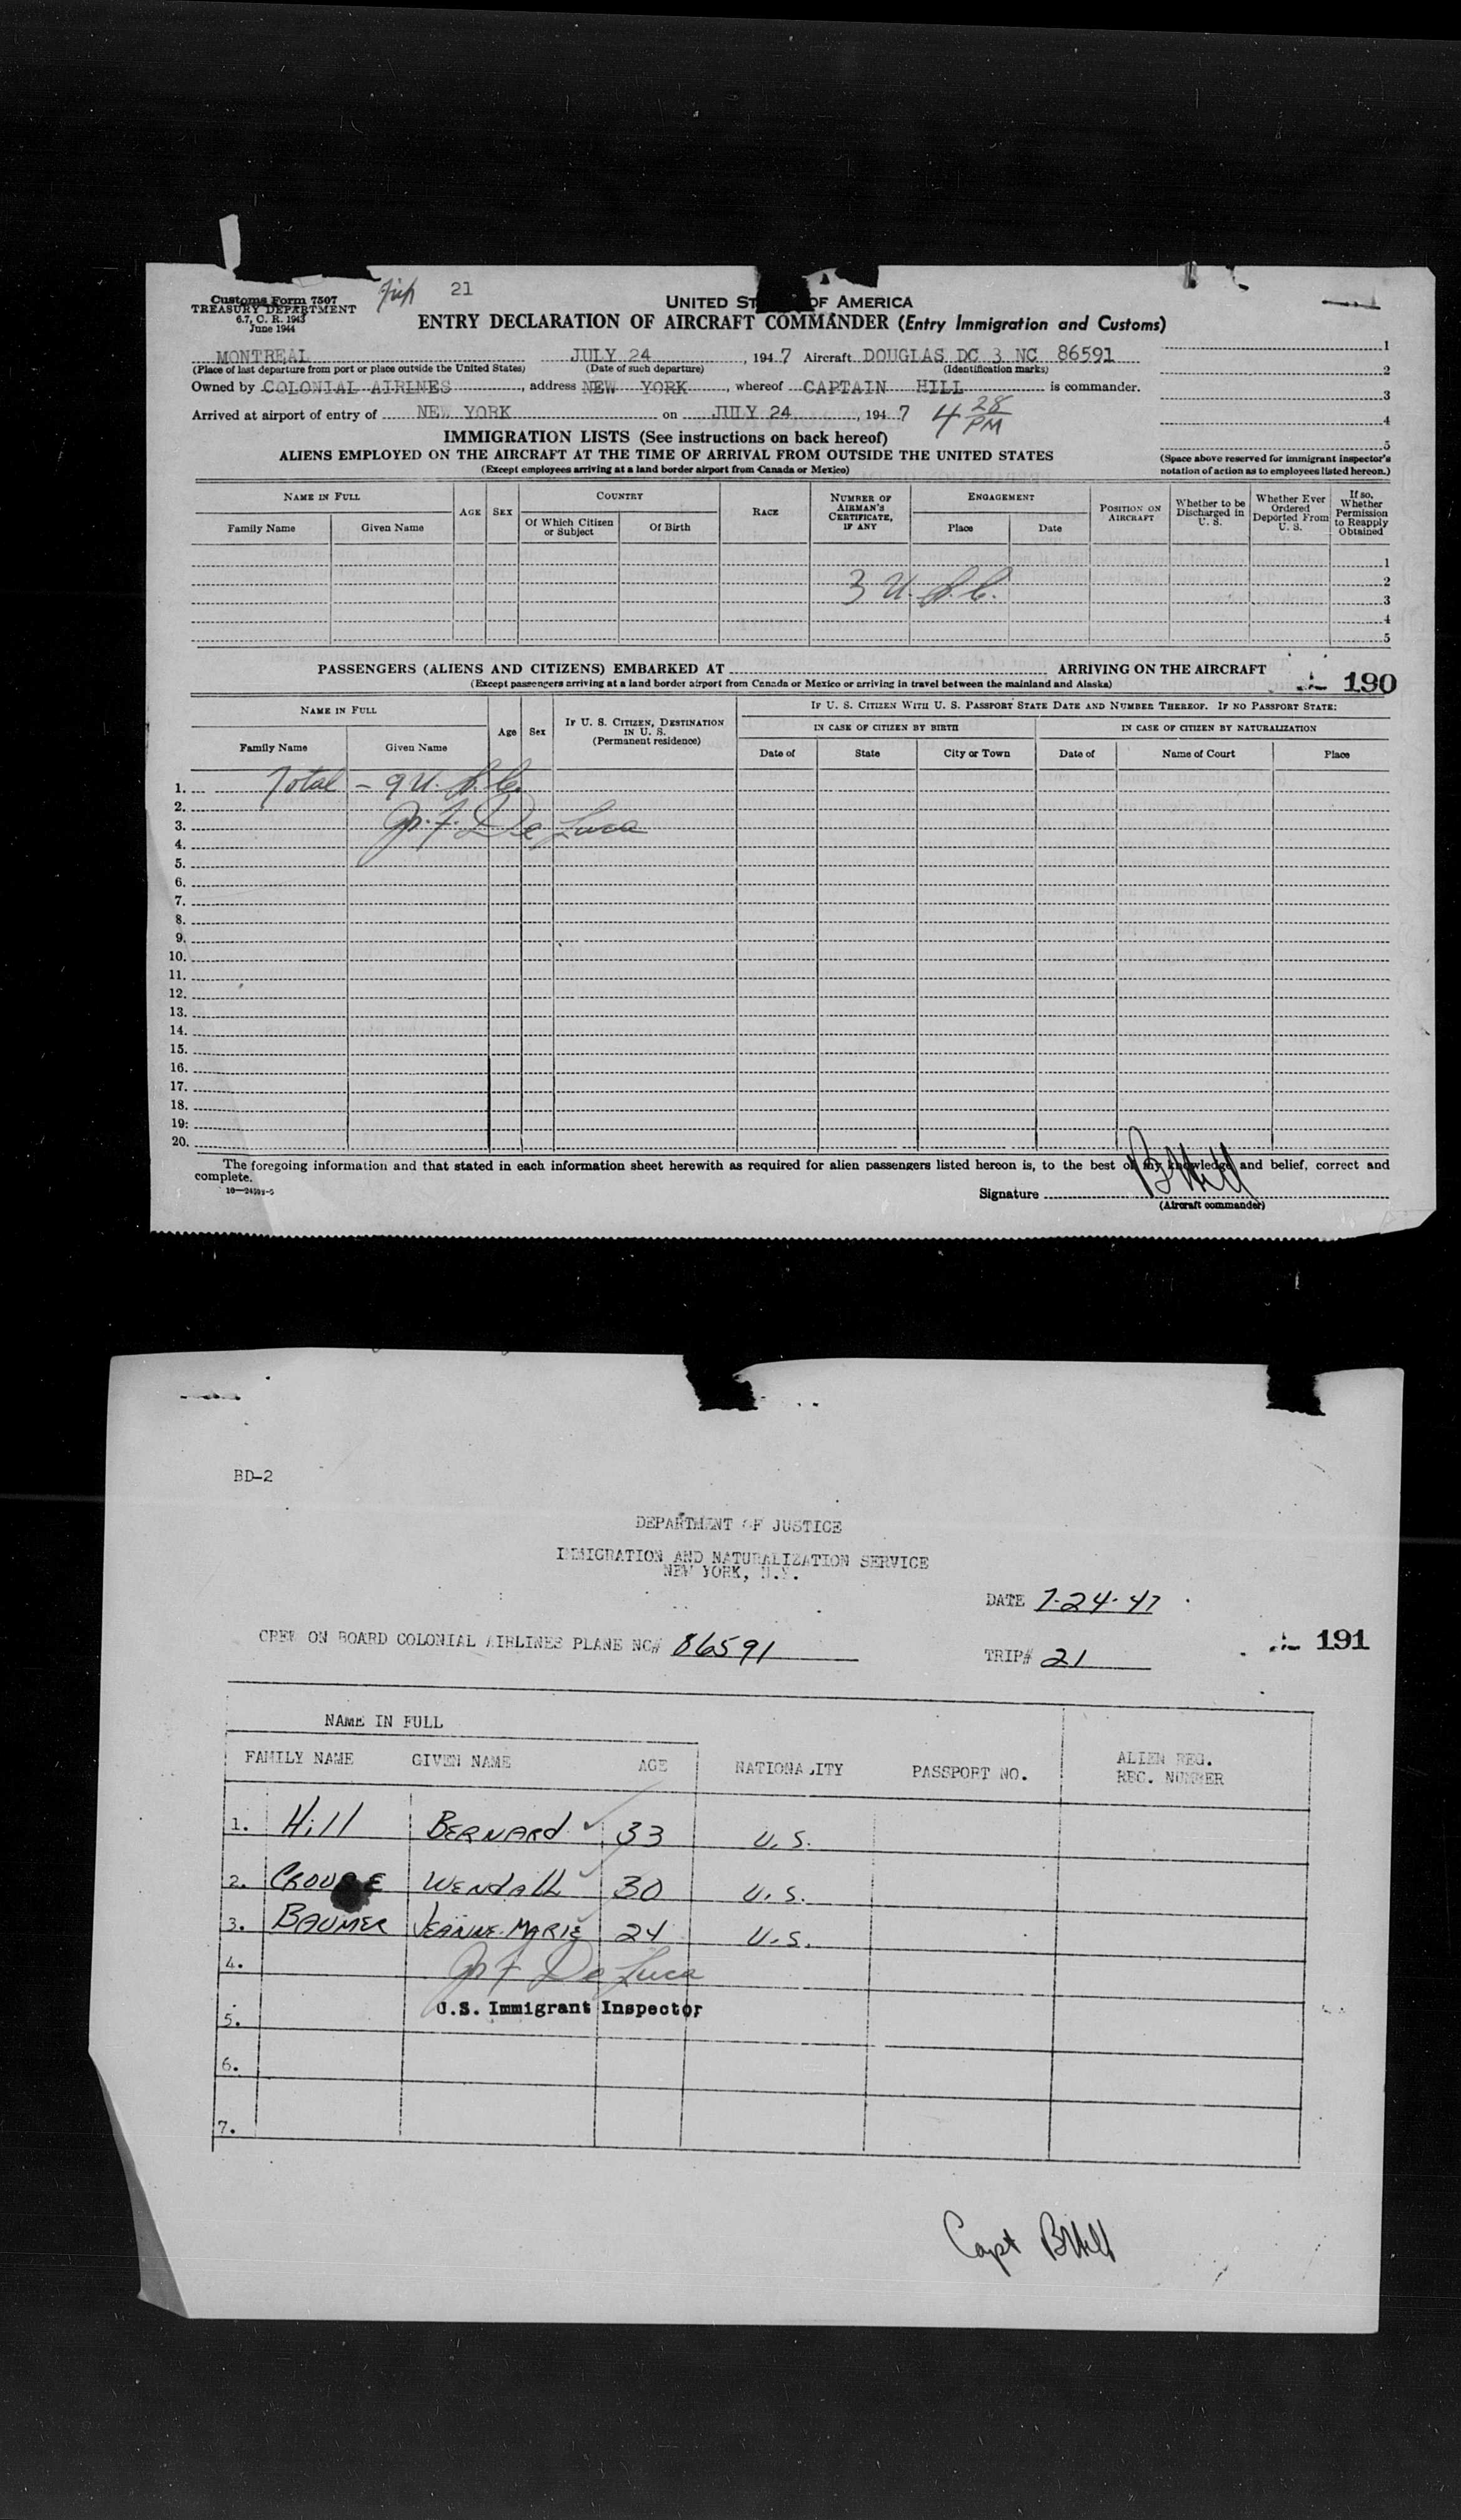 Customs Form 7507
TREASURY DEPARTMENT
6.7, C. R. 1943
June 1944
Trip 21
UNITED ST OF AMERICA
ENTRY DECLARATION OF AIRCRAFT COMMANDER (Entry Immigration and Customs)
MONTREAL JULY 24, 1947 Aircraft DOUGLAS DC 3 NC 86591
(Place of last departure from port or place outside the United States) (Date of such departure) (Identification marks)
Owned by COLONIAL AIRLINES, address NEW YORK, whereof CAPTAIN HILL is commander.
Arrived at airport of entry of NEW YORK on JULY 24, 1947 4 28 PM
1
2
3
4
5
(Space above reserved for immigrant inspector's notation of action as to employees listed hereon.)
IMMIGRATION LISTS (See instructions on back hereof)
ALIENS EMPLOYED ON THE AIRCRAFT AT THE TIME OF ARRIVAL FROM OUTSIDE THE UNITED STATES
(Except employees arriving at a land border airport from Canada or Mexico)
NAME IN FULL AGE SEX COUNTRY RACE NUMBER OF AIRMAN'S CERTIFICATE, IF ANY ENGAGEMENT POSITION ON AIRCRAFT Whether to be Discharged in U. S. Whether Ever Ordered Deported From U. S. If so, Whether Permission to Reapply Obtained
Family Name Given Name Of Which Citizen or Subject Of Birth Place Date
1
2
3 U.S.C.
3
4
5
PASSENGERS (ALIENS AND CITIZENS) EMBARKED AT ARRIVING ON THE AIRCRAFT
(Except passengers arriving at a land border airport from Canada or Mexico or arriving in travel between the mainland and Alaska)
190
NAME IN FULL Age Sex IF U. S. CITIZEN, DESTINATION IN U. S. (Permanent residence) IF U. S. CITIZEN WITH U. S. PASSPORT STATE DATE AND NUMBER THEREOF. IF NO PASSPORT STATE:
IN CASE OF CITIZEN BY BIRTH IN CASE OF CITIZEN BY NATURALIZATION
Family Name Given Name Date of State City or Town Date of Name of Court Place
1. Total - 9 U.S.C.
2.
3. De Luca
4.
5.
6.
7.
8.
9.
10.
11.
12.
13.
14.
15.
16.
17.
18.
19.
20.
The foregoing information and that stated in each information sheet herewith as required for alien passengers listed hereon is, to the best of my knowledge and belief, correct and
complete.
Signature B Hill
(Aircraft commander)
BD-2
DEPARTMENT OF JUSTICE
IMMIGRATION AND NATURALIZATION SERVICE
NEW YORK, N.Y.
DATE 7-24-47
CREW ON BOARD COLONIAL AIRLINES PLANE NC# 86591
TRIP# 21
191
NAME IN FULL
FAMILY NAME GIVEN NAME AGE NATIONALITY PASSPORT NO. ALIEN REG. REC. NUMBER
1. Hill BERNARD 33 U.S.
2. CROUSE WENDALL 30 U.S.
3. BAUMER JEANNE-MARIE 24 U.S.
4. De Luca
U.S. Immigrant Inspector
5.
6.
7.
Capt B Hill